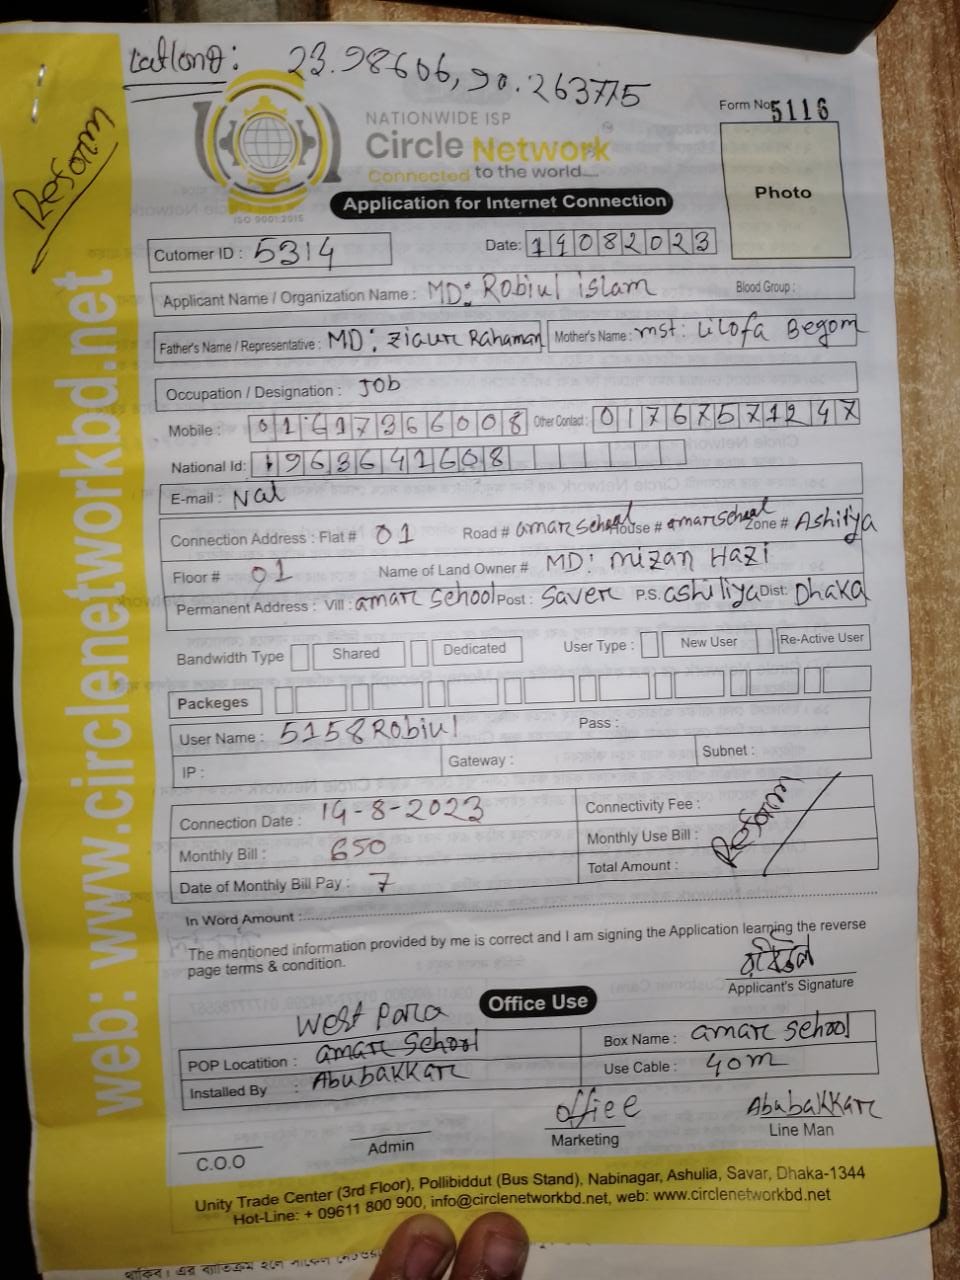 Latlong: 23.98606, 90.263775
Reform
NATIONWIDE ISP
Circle Network
Connected to the world....
ISO 9001:2015
Form No 5116
Photo
Application for Internet Connection
Cutomer ID : 5314 Date: 14082023
Applicant Name / Organization Name : MD: Robiul islam Blood Group :
Father's Name / Representative : MD: Ziaur Rahaman Mother's Name : mst: Lilofa Begom
Occupation / Designation : JOb
Mobile : 01617366008 Other Contact : 01767571247
National Id: 1963641608
E-mail : Nal
Connection Address : Flat# 01 Road # amar School House # amar School Zone # Ashiliya
Floor # 01 Name of Land Owner # MD: mizan Hazi
Permanent Address : Vill : amar School Post : Saver P.S. ashiliya Dist: Dhaka
Bandwidth Type Shared Dedicated User Type : New User Re-Active User
Packeges
User Name : 5158Robiul Pass :
IP : Gateway : Subnet :
Connection Date : 14-8-2023 Connectivity Fee :
Monthly Bill : 650 Monthly Use Bill : Reform
Date of Monthly Bill Pay : 7 Total Amount :
In Word Amount :
The mentioned information provided by me is correct and I am signing the Application learning the reverse
page terms & condition.
Applicant's Signature
Office Use
West Para
POP Locatition : amar School Box Name : amar School
Installed By : Abubakkar Use Cable : 40m
office Abubakkar
C.O.O Admin Marketing Line Man
Unity Trade Center (3rd Floor), Pollibiddut (Bus Stand), Nabinagar, Ashulia, Savar, Dhaka-1344
Hot-Line: + 09611 800 900, info@circlenetworkbd.net, web: www.circlenetworkbd.net
web: www.circlenetworkbd.net